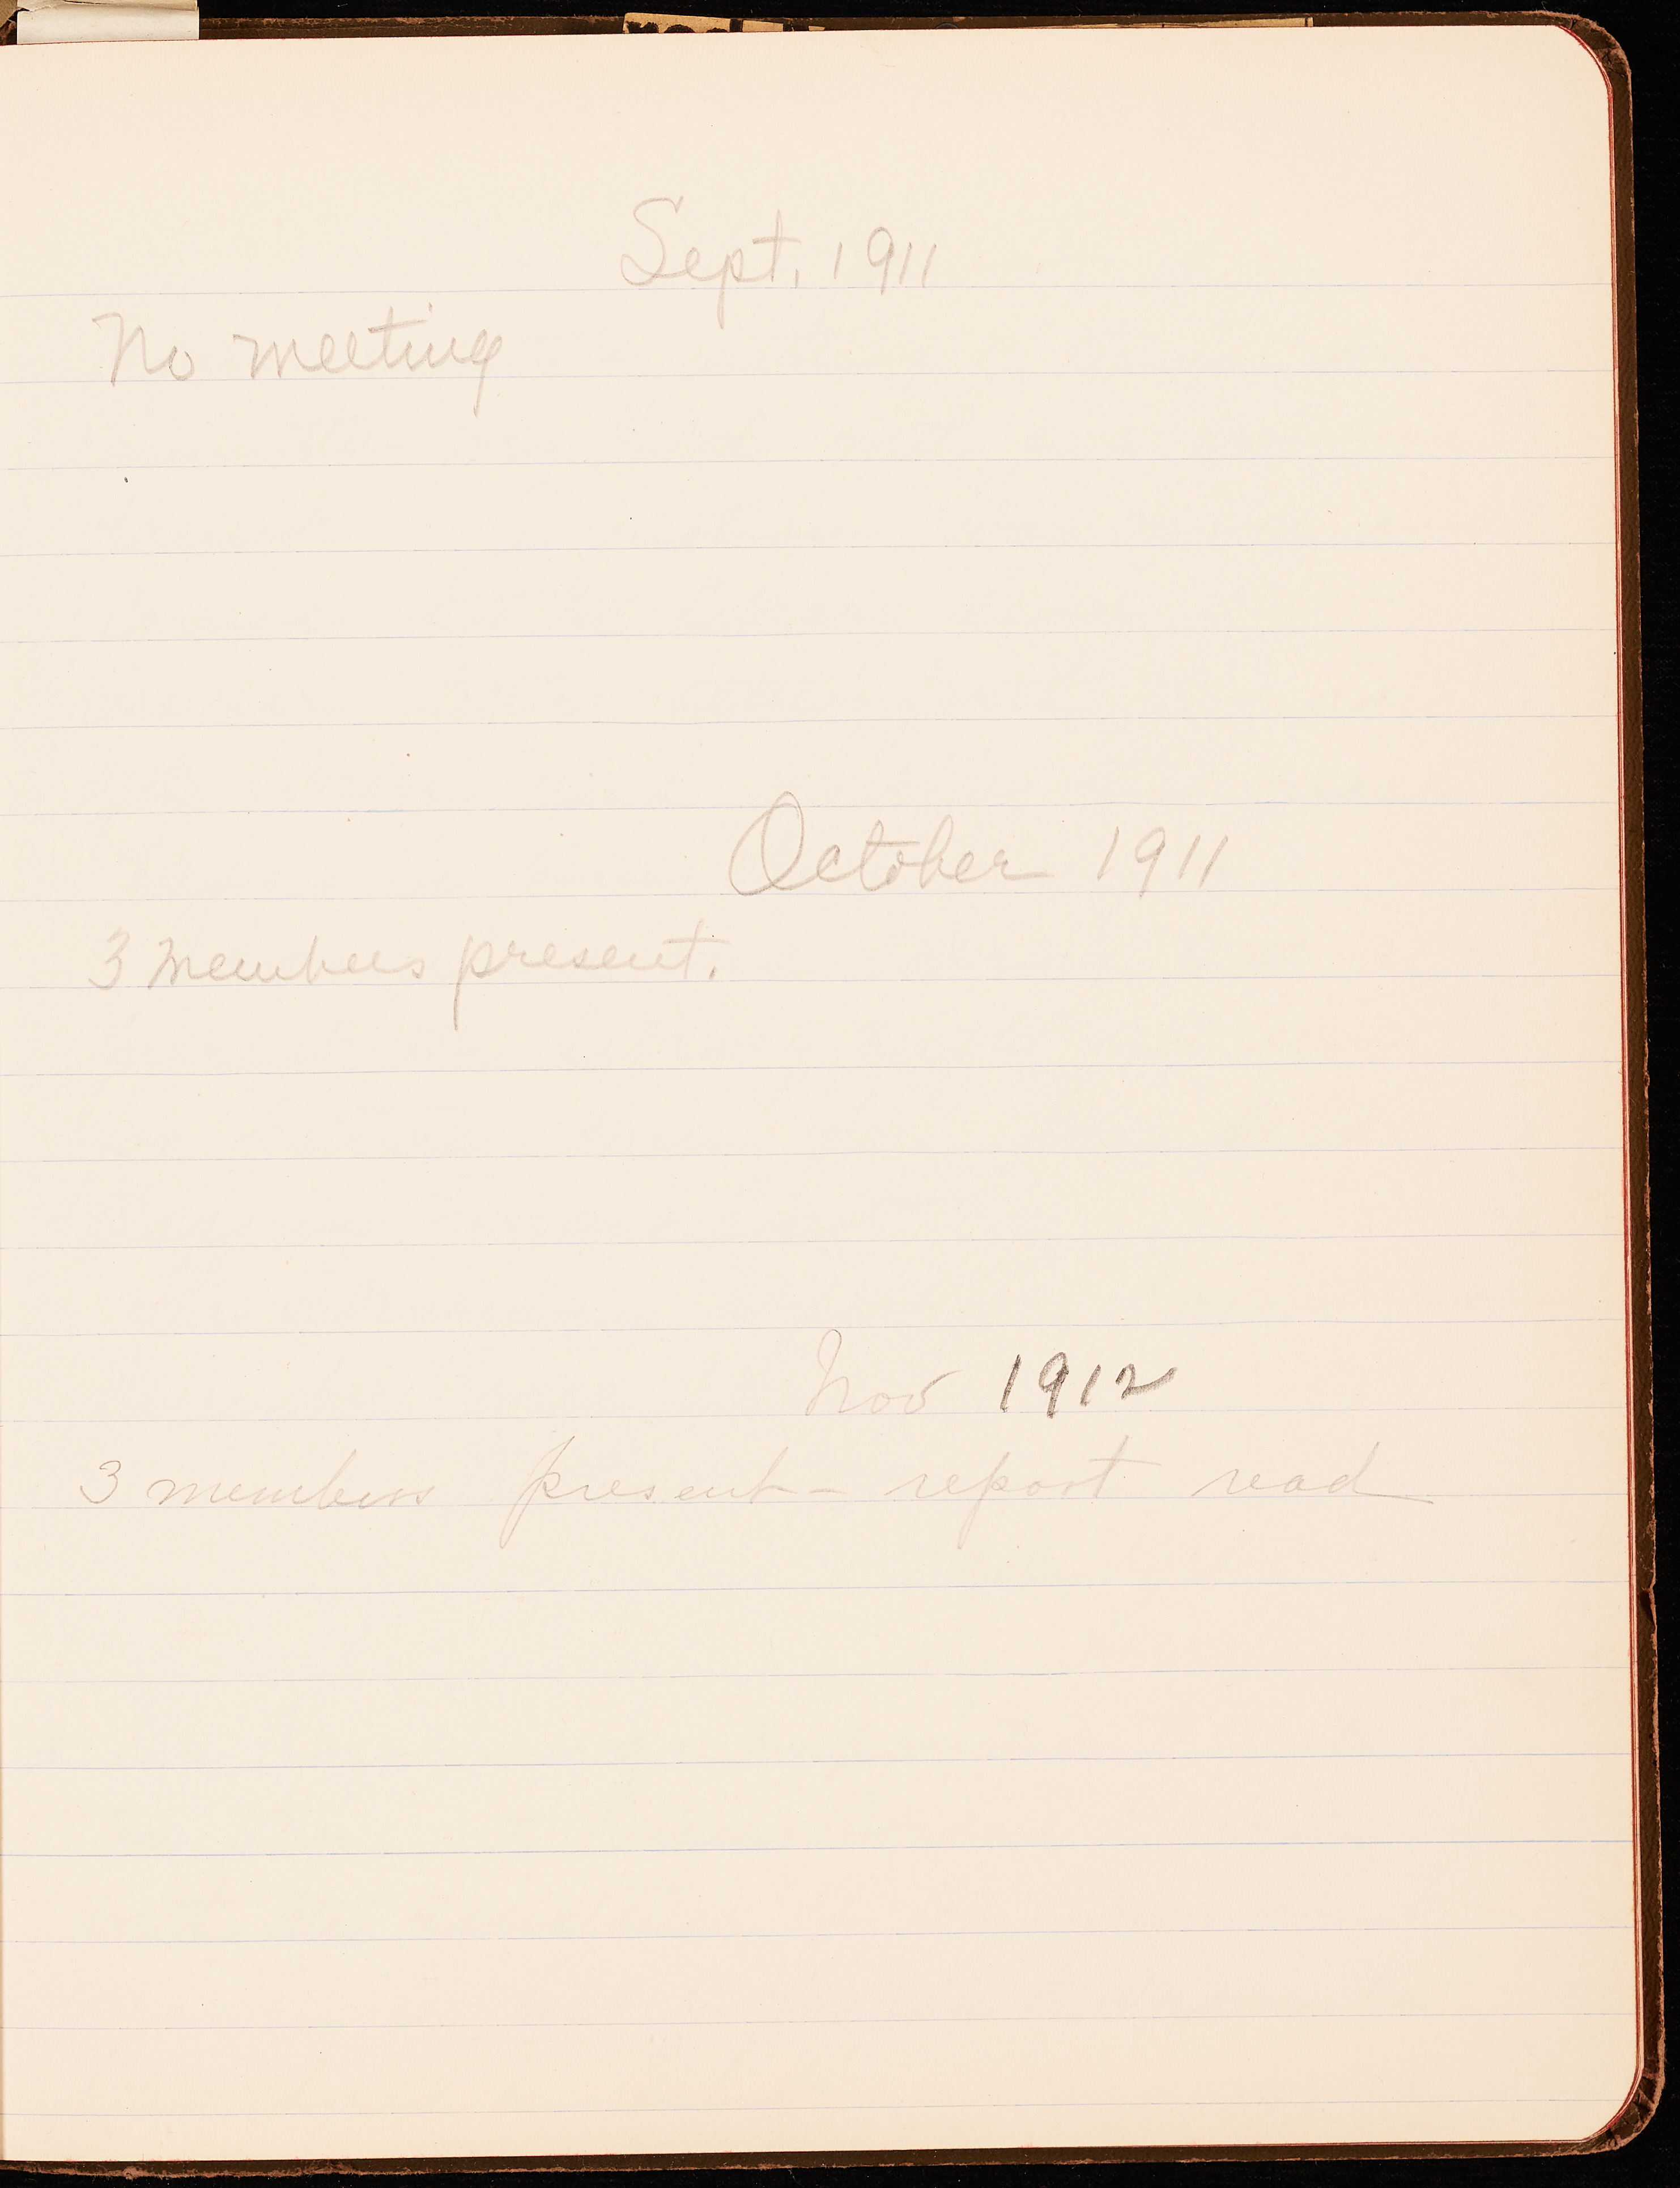 Sept. 1911
No meeting
October 1911
3 members present.
Nov 1912
3 members present - report read